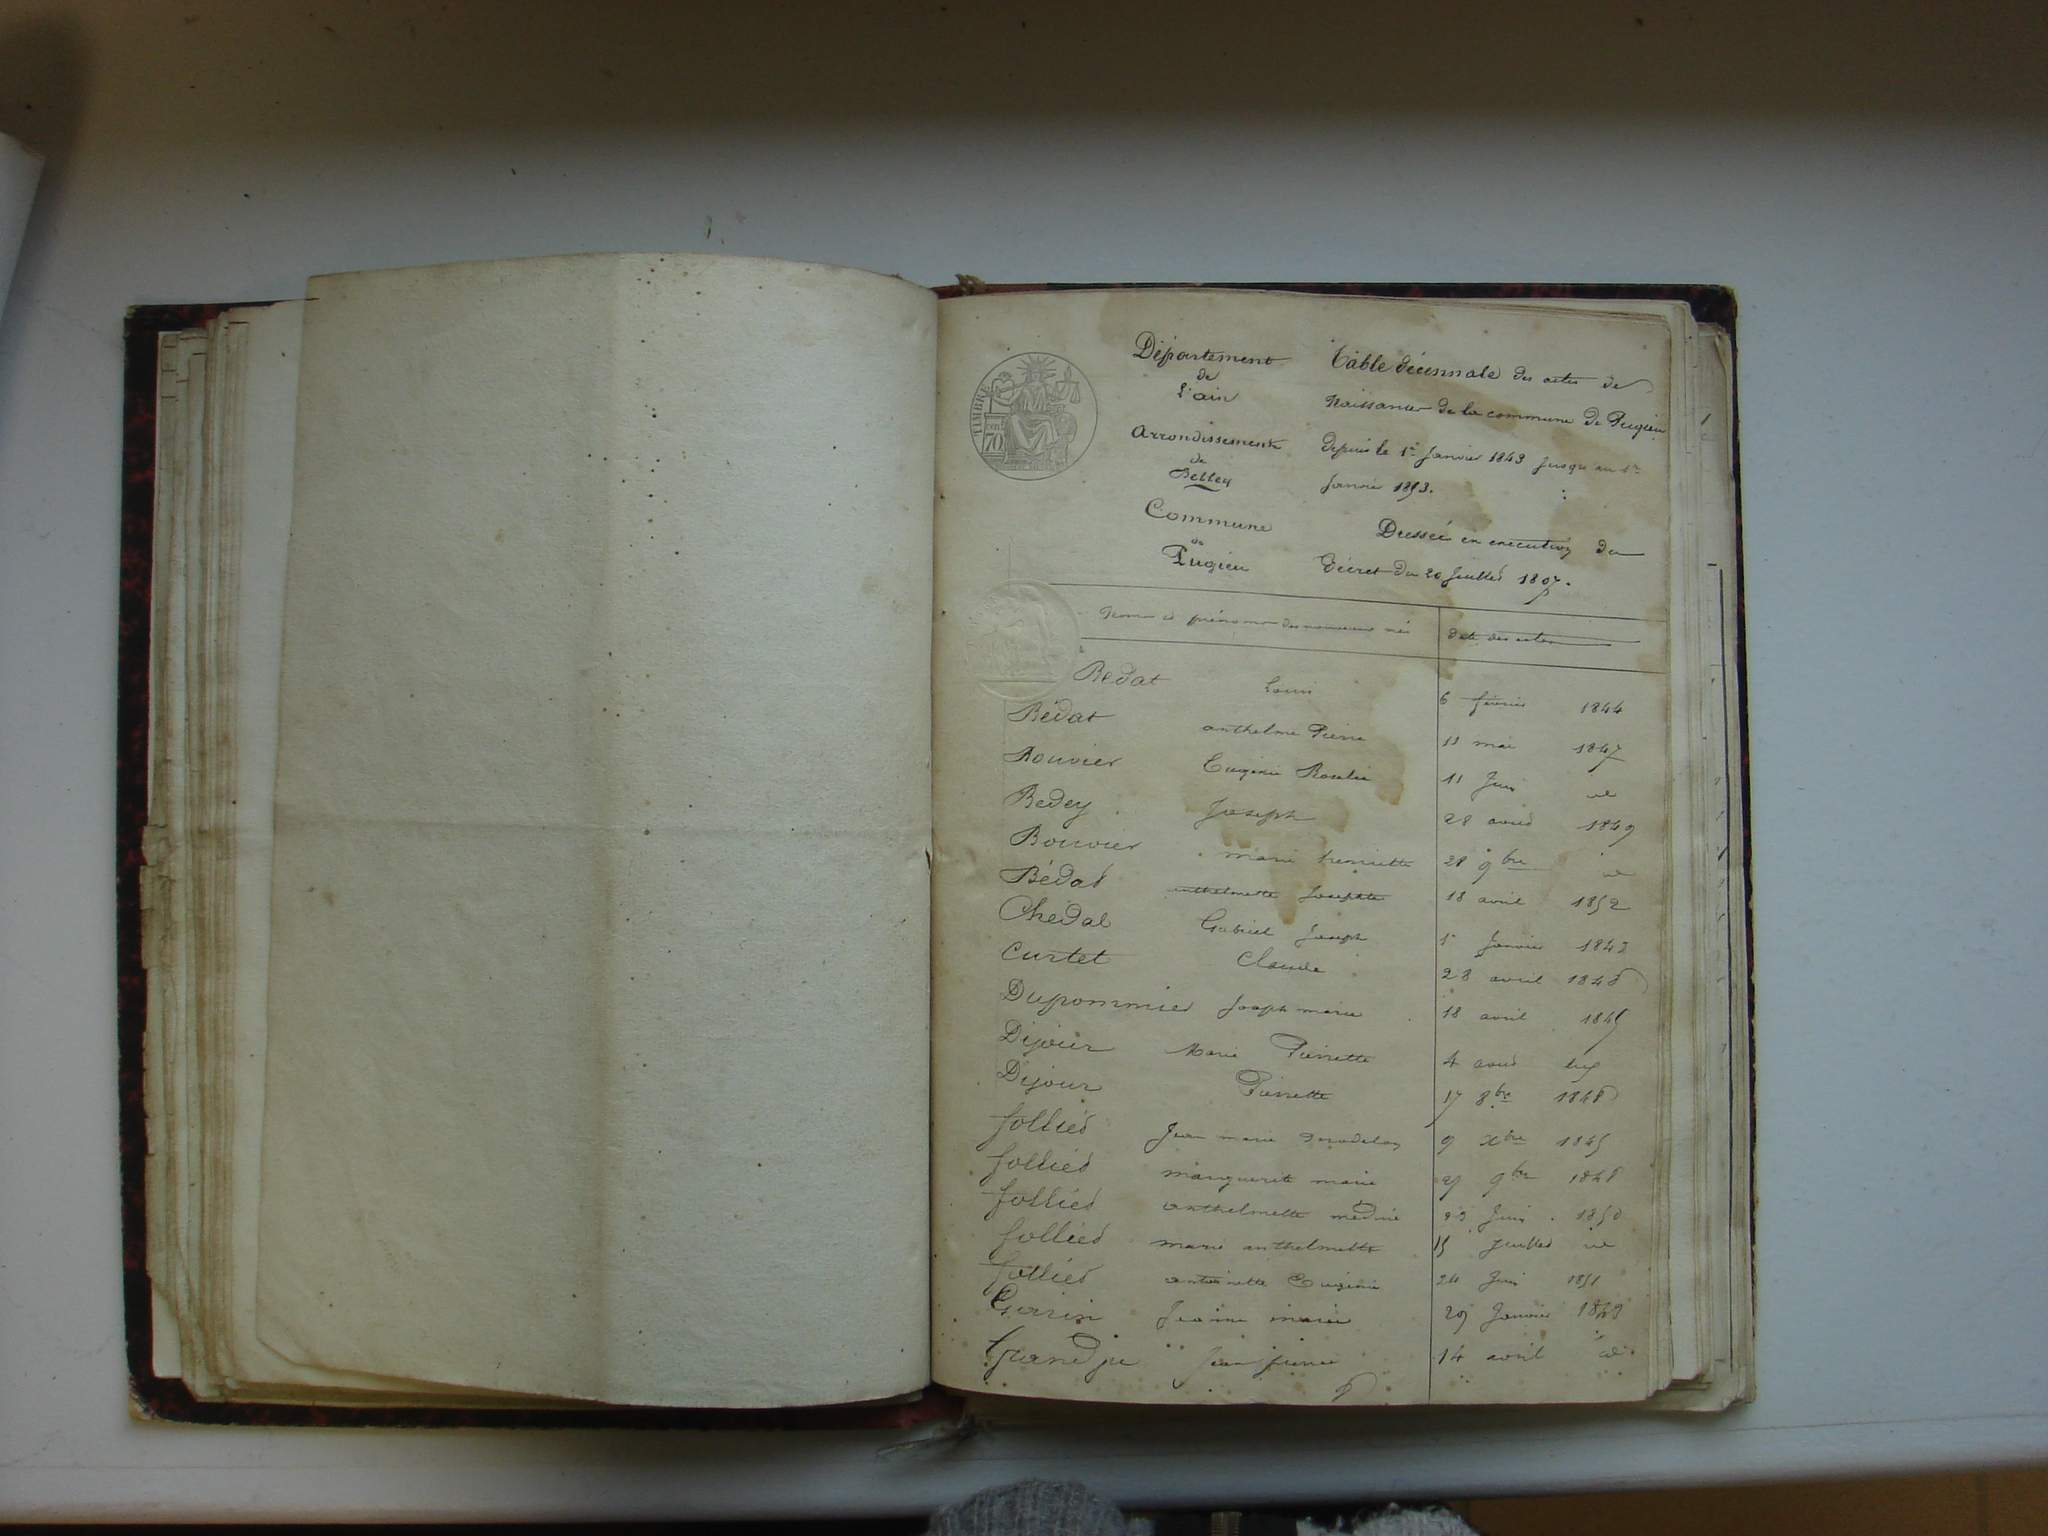 TIMBRE
70
Département
de
L'ain
Arrondissement
de
Belley
Commune
de
Pugieu
Table décennale des actes de
Naissances de la commune de Pugieu
depuis le 1er Janvier 1843 Jusqu'au 1er
Janvier 1853.
Dressée en execution du
Décret du 20 Juillet 1807.
Noms et prénoms des nouveaux nés date des actes
Bedat Louis 6 février 1844
Bédat anthelme Pierre 11 mai 1847
Bouvier Eugénie Rosalie 11 Juin id
Bedey Joseph 28 aout 1849
Bouvier marie henriette 28 9bre id
Bédat anthelmette Josephte 18 avril 1852
Chedal Gabriel Joseph Janvier 1843
Curtet Claude 28 avril 1848
Dupommier Joseph marie 18 avril 1845
Dijoux Marie Pierrette 4 aout
Dijoux Pierrette 17 8bre 1848
folliet Jean marie 9 Xbre 1845
folliet marguerite marie 9bre 1848
folliet anthelmette 23 Juin 1850
folliet marie anthelmette 15 Juillet id
folliet antoinette Eugénie 24 Juin 1851
Garin Jeanne marie 29 Janvier 1843
Jean pierre 14 avril id